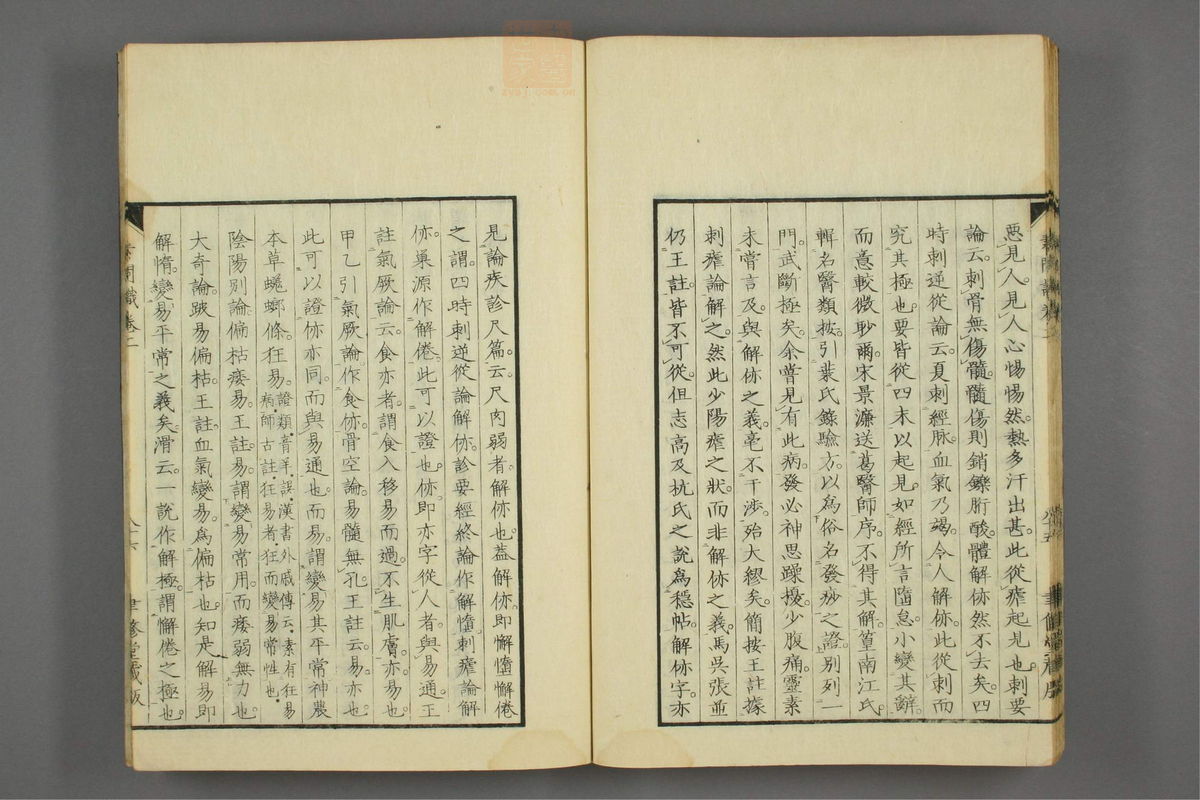 惡見人見人心惕惕然熱多汗出甚此從瘧起見也刺要
論云刺骨無傷髓髓傷則銷鑠胻酸體解㑊然不去矣四
時刺逆從論云夏刺經脉血氣乃竭令人解㑊此從刺而
究其極也要皆從四末以起見如經所言隋怠小變其辭
而意較微眇爾宋景濂送葛醫師序不得其解篁南江氏
輯名醫類按引葉氏錄驗方以爲俗名發痧之證別列一
門武斷極矣余嘗見有此病發必神思躁擾少腹痛靈素
未嘗言及與解㑊之義毫不干涉殆大繆矣簡按王註據
刺瘧論解之然此少陽瘧之狀而非解㑊之義馬吳張並
仍王註皆不可從但志高及杭氏之說爲穩帖解㑊字亦
見論疾診尺篇云尺肉弱者解㑊也蓋解㑊卽懈惰懈倦
之謂四時刺逆從論解㑊診要經終論作解惰刺瘧論解
㑊巢源作解倦此可以證也㑊卽亦字從人者與易通王
註氣厥論云食亦者謂食入移易而過不生肌膚亦易也
甲乙引氣厥論作食㑊骨空論易髓無孔王註云易亦也
此可以證㑊亦同而與易通也而易謂變易其平常神農
本草蜣蜋條狂易證類音羊誤漢書外戚傳云素有狂易病師古註狂易者狂而變易常性也
陰陽別論偏枯痿易王註易謂變易常用而痿弱無力也
大奇論跛易偏枯王註血氣變易爲偏枯也知是解易卽
解惰變易平常之義矣滑云一說作解極謂懈倦之極也
素問識卷二
聿修堂藏版